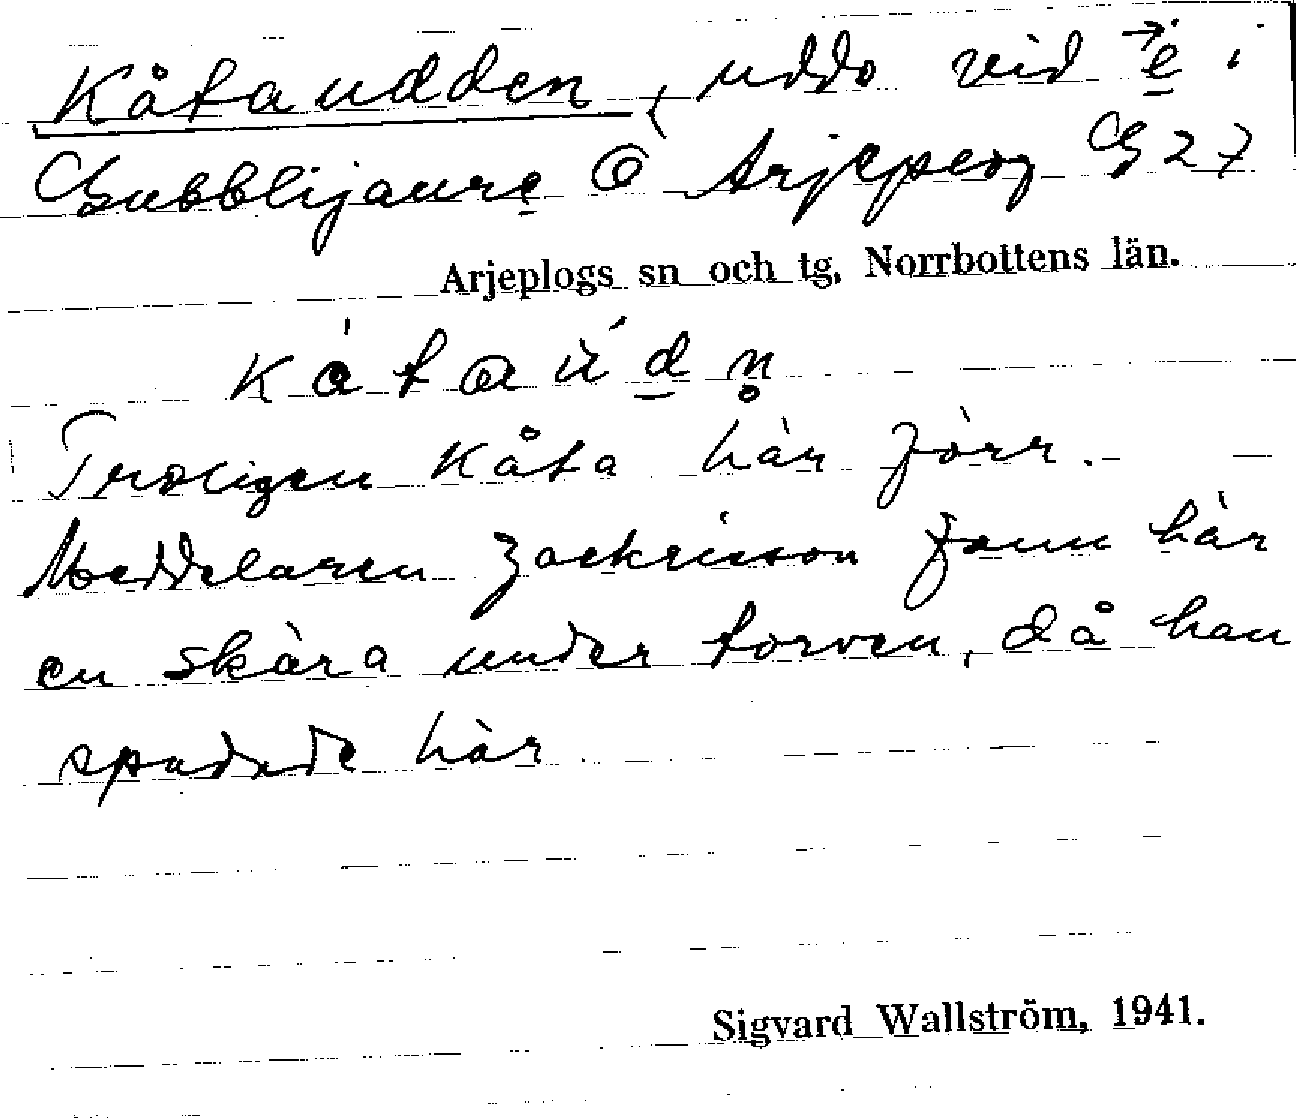 Kåtaudden, udde vid → e i
Gubblijaure O Arjeplog G 27
Arjeplogs sn och tg, Norrbottens län.
Troligen kåta här förr.
Meddelaren Zackrisson fann här
en skära under torven, då han
spadade här
Sigvard Wallström, 1941.